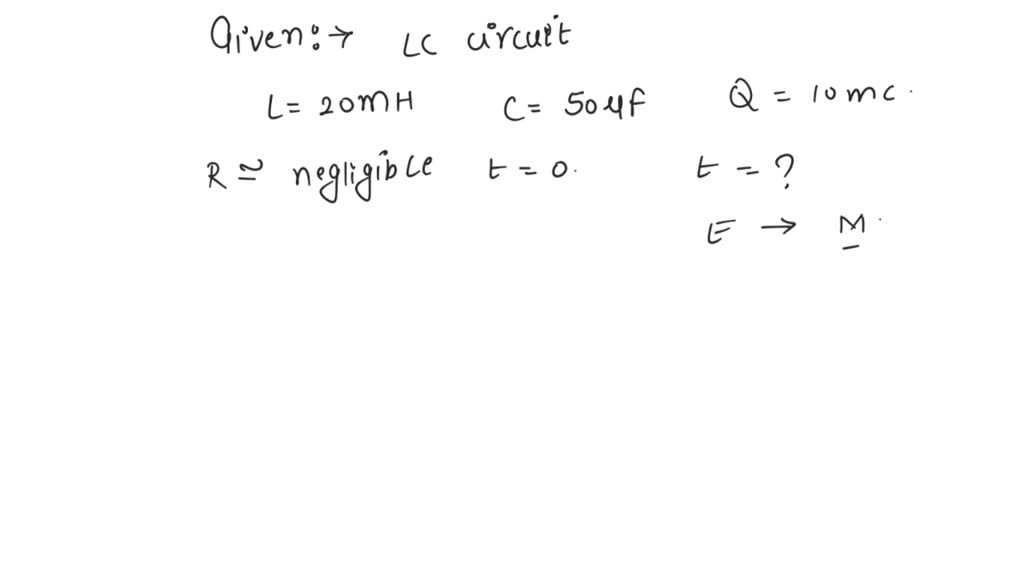 Given:→ LC circuit
L = 20mH C = 50μf Q = 10mc.
R ≃ negligible t = 0. t = ?
E → M.